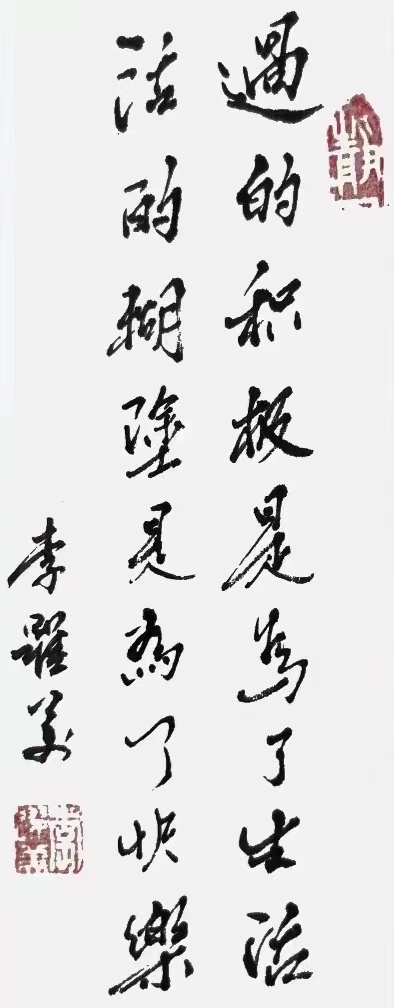 過的积极是為了生活
活的糊塗是為了快樂
李